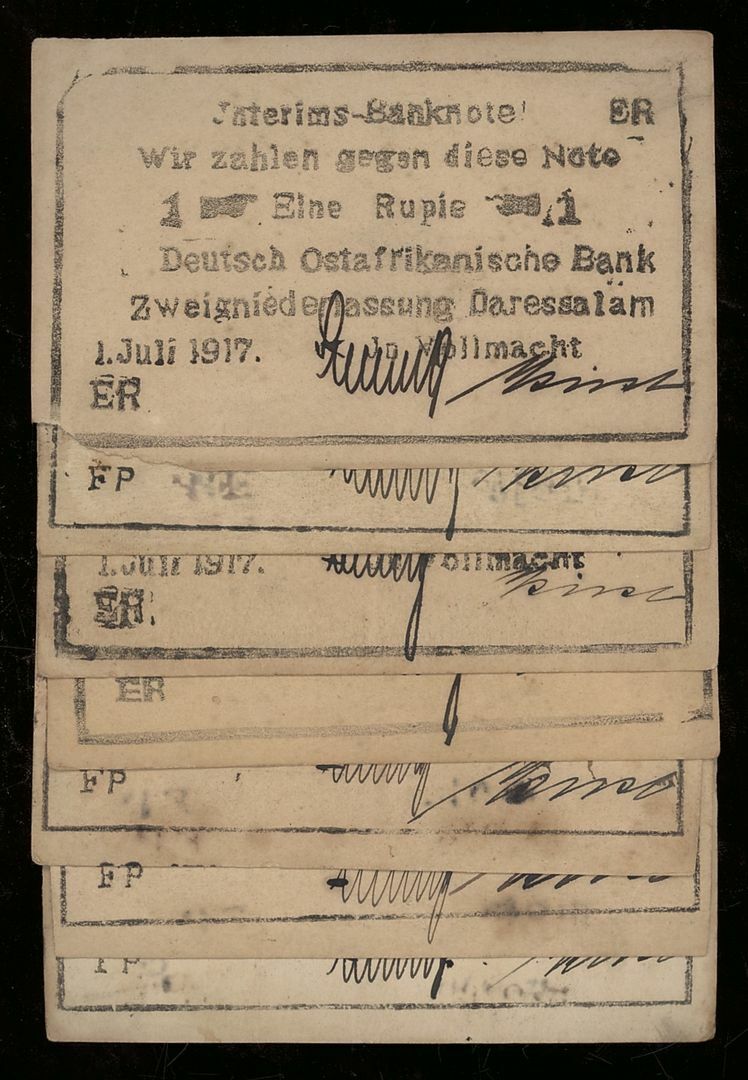 Interims-Banknote! ER
Wir zahlen gegen diese Note
1 Eine Rupie 1
Deutsch Ostafrikanische Bank
Zweigniederlassung Daressalam
1. Juli 1917. In Vollmacht
ER
FP
1. Juli 1917. Vollmacht
ER
ER
FP
FP
FP